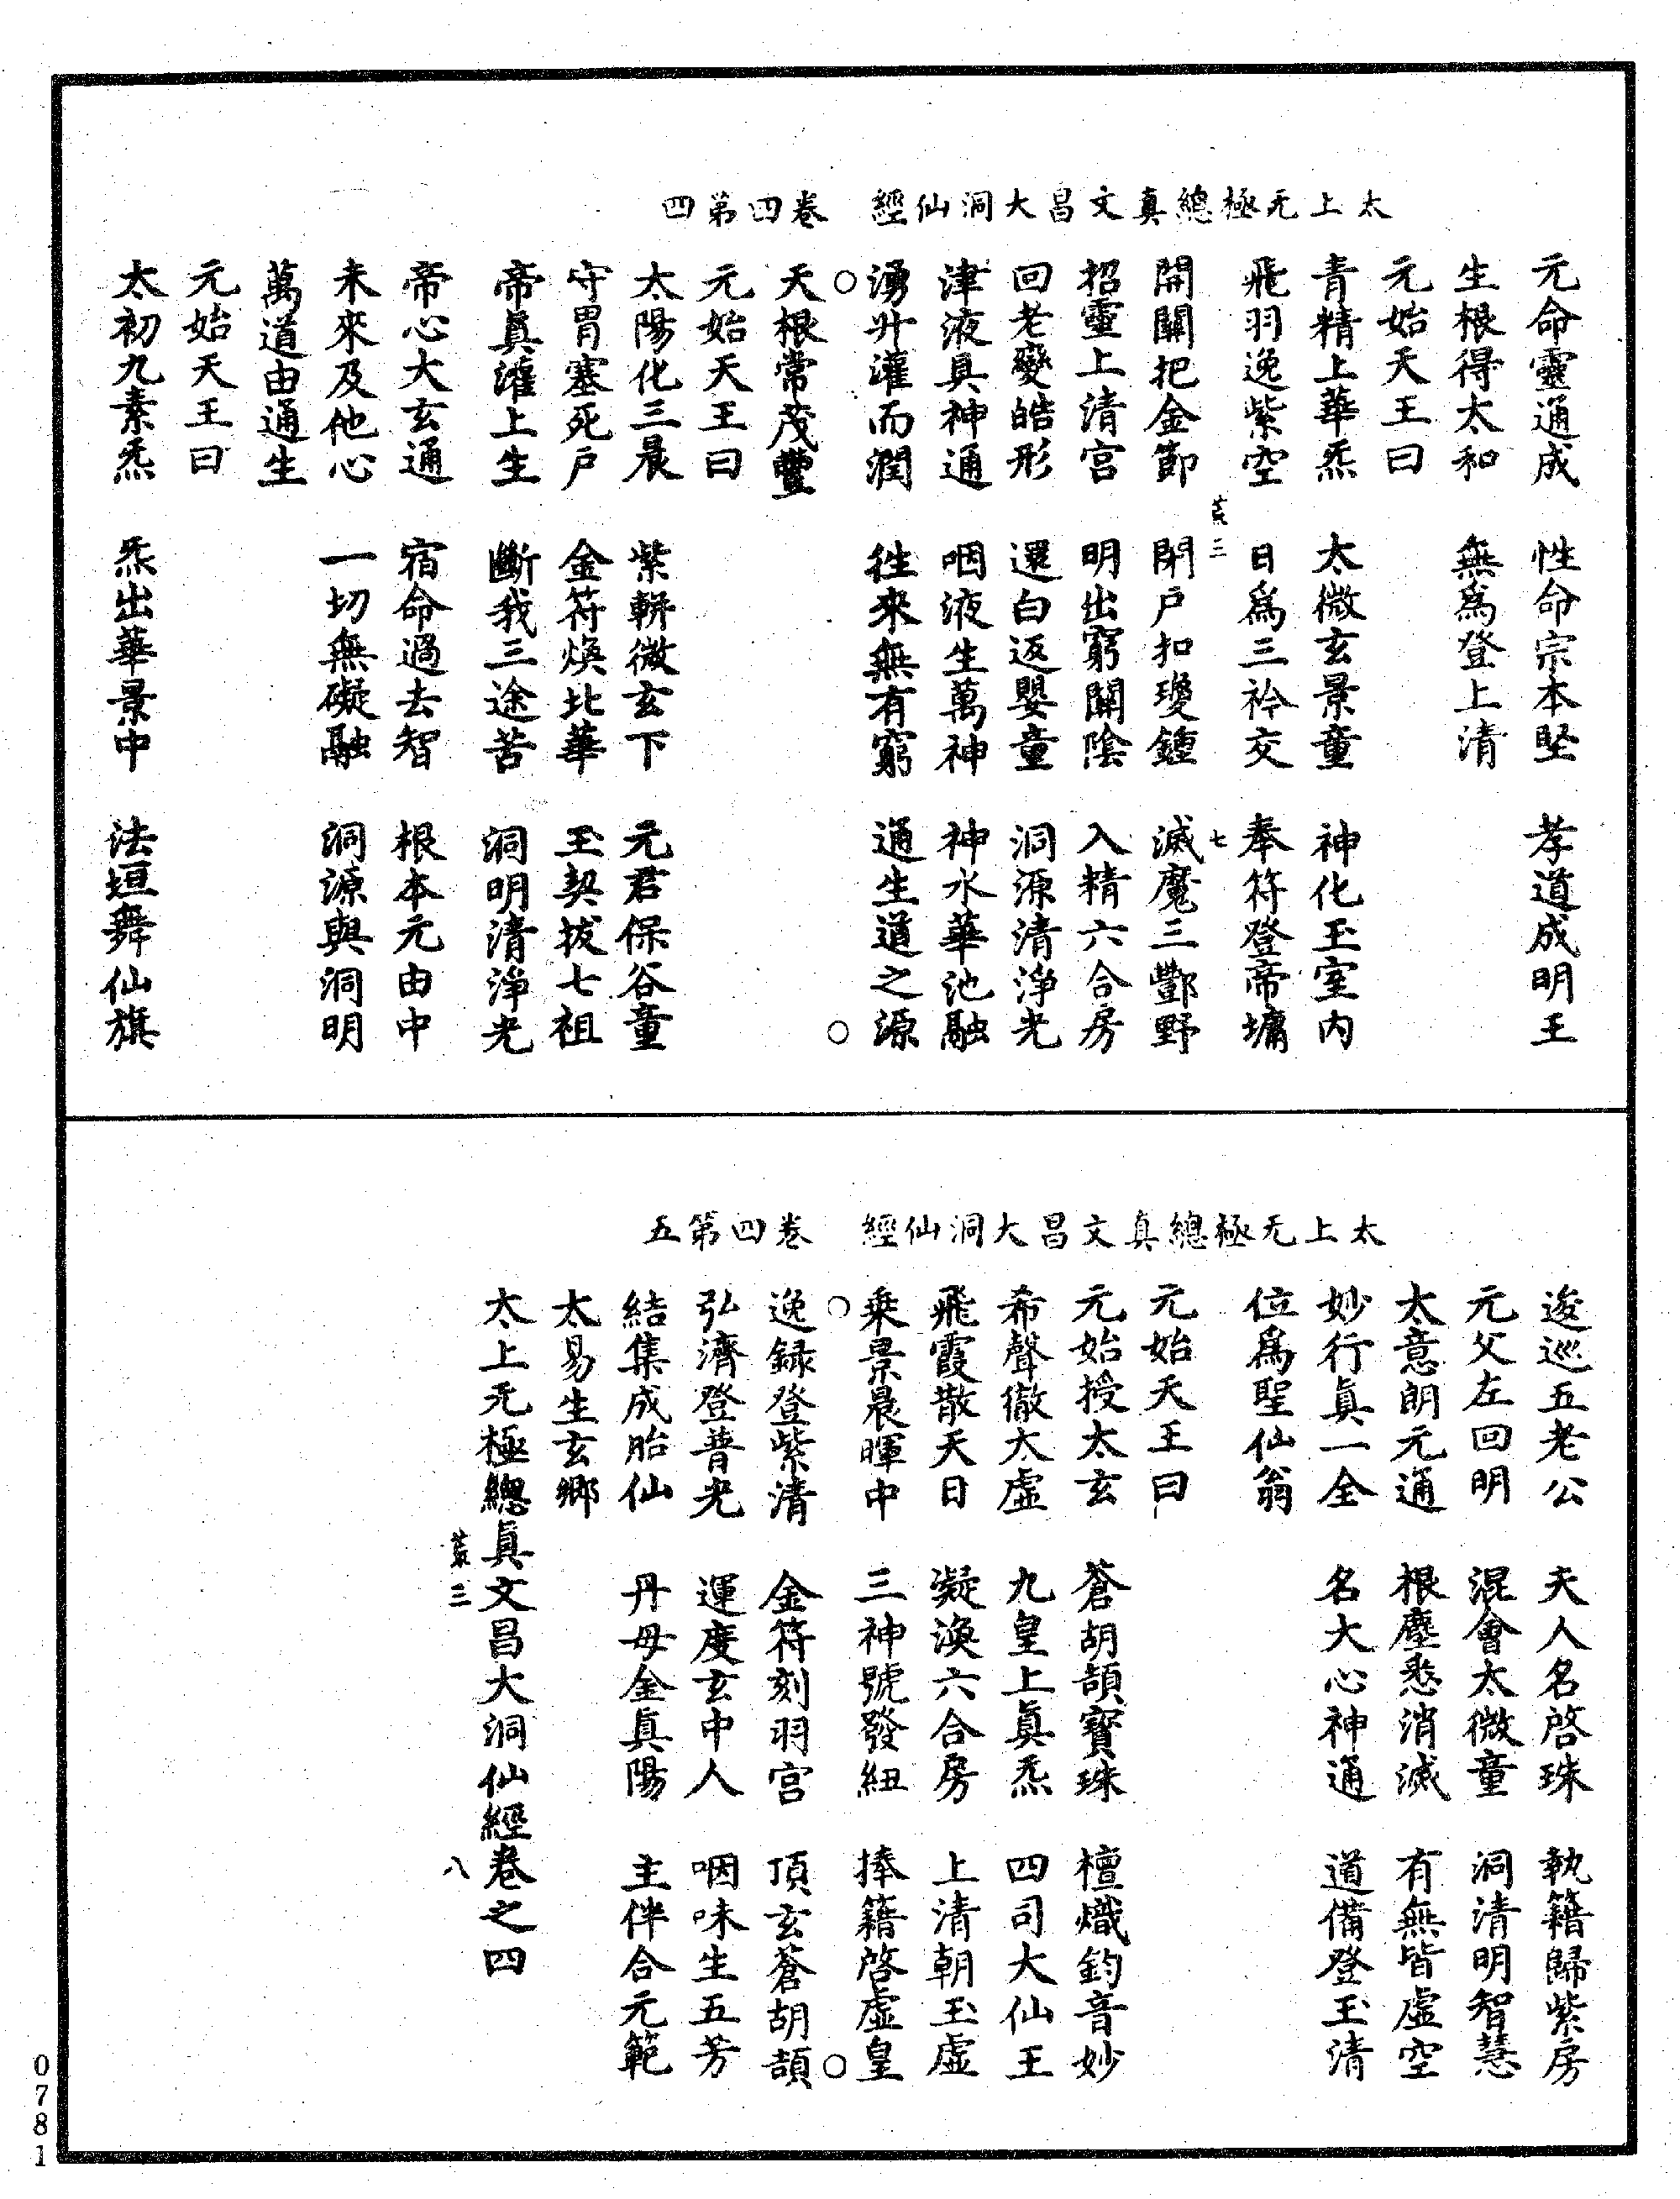 太上无極總真文昌大洞仙經　卷四第四
元命靈通成　性命宗本堅　孝道成明王
生根得太和　無為登上清
元始天王曰
青精上華炁　太微玄景童　神化玉室內
飛羽逸紫空　日為三衿交　奉符登帝墉
荒三　七
開關把金節　閉戶扣瓊鐘　滅魔三酆野
招靈上清宮　明出窮關陰　入精六合房
回老變皓形　還白返嬰童　洞源清淨光
津液具神通　咽液生萬神　神水華池融
湧升灌而潤　徃來無有窮　通生道之源
○　○
天根常茂豐
元始天王曰
太陽化三晨　紫軿微玄下　元君保谷童
守胃塞死戶　金符煥北華　玉契拔七祖
帝真灌上生　斷我三途苦　洞明清淨光
帝心大玄通　宿命過去智　根本元由中
未來及他心　一切無礙融　洞源與洞明
萬道由通生
元始天王曰
太初九素炁　炁出華景中　法垣舞仙旗
太上无極總真文昌大洞仙經　卷四第五
逡巡五老公　夫人名啓珠　執籍歸紫房
元父左回明　混會太微童　洞清明智慧
太意朗元通　根塵悉消滅　有無皆虛空
妙行真一全　名大心神通　道備登玉清
位為聖仙翁
元始天王曰
元始授太玄　蒼胡頡寶珠　檀熾鈞音妙
希聲徹太虛　九皇上真炁　四司大仙王
飛霞散天日　凝渙六合房　上清朝玉虛
乘景晨暉中　三神號發紐　捧籍啓虛皇
○　○
逸録登紫清　金符刻羽宮　頂玄蒼胡頡
弘濟登普光　運度玄中人　咽味生五芳
結集成胎仙　丹母金真陽　主伴合元範
太易生玄鄉
太上无極總真文昌大洞仙經卷之四
荒三　八
0781